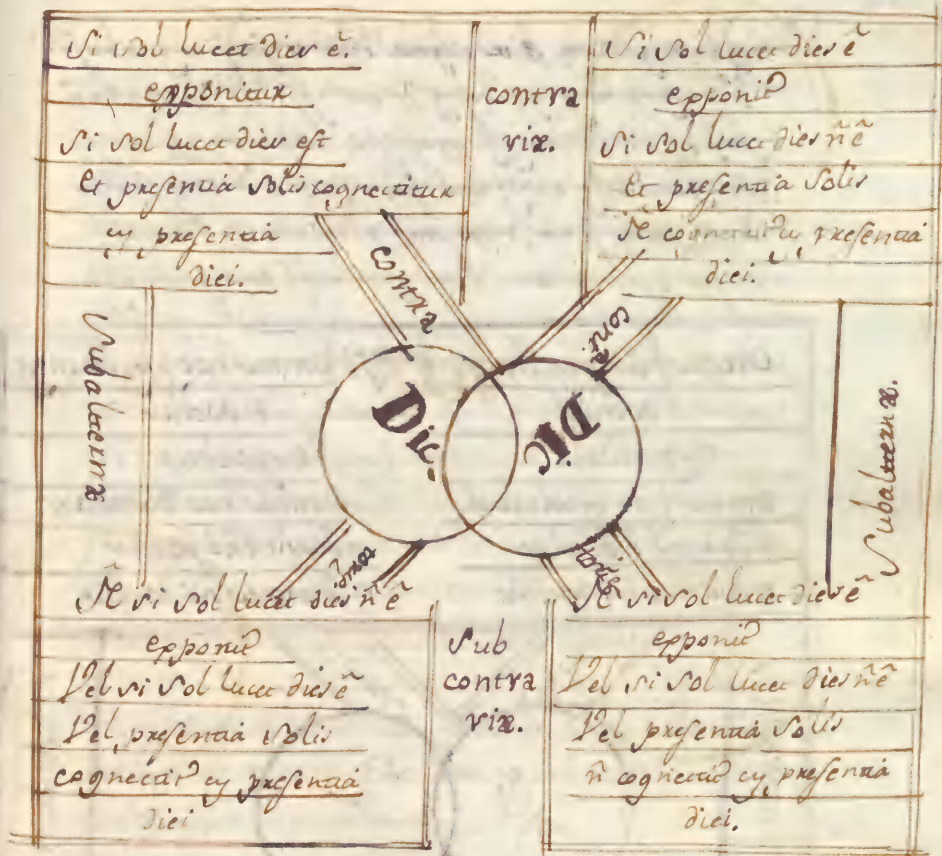 Si sol lucet dies ẽ.
exponitur
Si sol lucet dies est
Et presentia solis cognectitur
cũ presentia
diei.
contra
riæ.
Si sol lucet dies ẽ
exponit̃
Si sol lucet dies ñ ẽ
Et presentia solis
Ñ cognectit̃ cũ presentia
diei.
Subalternæ
contra
cont̃a
Subalternæ.
Dic.
Dic
Ñ si sol lucet dies ñ ẽ
exponit̃
Vel si sol lucet dies ẽ
Vel presentia solis
cognectit̃ cũ presentia
diei
Sub
contra
riæ.
Ñ si sol lucet dies ẽ
exponit̃
Vel si sol lucet dies ñ ẽ
Vel presentia solis
ñ cognectit̃ cũ presentia
diei.